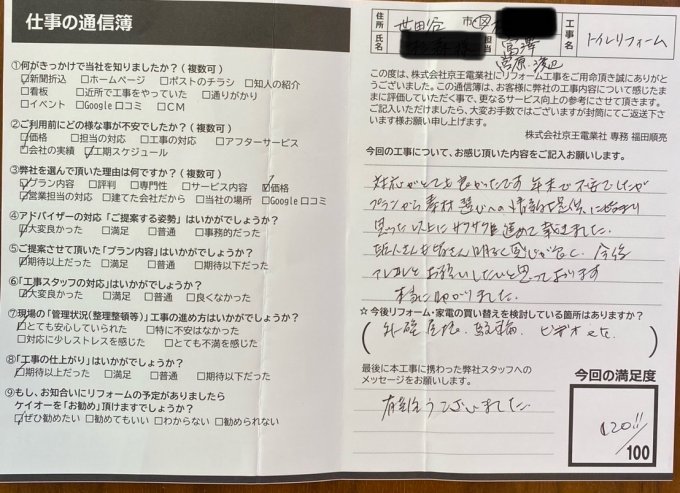 仕事の通信簿
①何がきっかけで当社を知りましたか?(複数可)
☑新聞折込 □ホームページ □ポストのチラシ □知人の紹介
□看板 □近所で工事をやっていた □通りがかり
□イベント □Google口コミ □CM
②ご利用前にどの様な事が不安でしたか?(複数可)
☑価格 □担当の対応 □工事の対応 □アフターサービス
□会社の実績 ☑工期スケジュール
③弊社を選んで頂いた理由は何ですか?(複数可)
☑プラン内容 □評判 □専門性 □サービス内容 ☑価格
☑営業担当の対応 □建てた会社だから □当社の場所 □Google口コミ
④アドバイザーの対応「ご提案する姿勢」はいかがでしょうか?
☑大変良かった □満足 □普通 □事務的だった
⑤ご提案させて頂いた「プラン内容」はいかがでしょうか?
☑期待以上だった □満足 □普通 □期待以下だった
⑥「工事スタッフの対応」はいかがでしょうか?
☑大変良かった □満足 □普通 □良くなかった
⑦現場の「管理状況(整理整頓等)」工事の進め方はいかがでしょうか?
☑とても安心していられた □特に不安はなかった
□対応に少しストレスを感じた □とても不満を感じた
⑧「工事の仕上がり」はいかがでしょうか?
☑期待以上だった □満足 □普通 □期待以下だった
⑨もし、お知合いにリフォームの予定がありましたら
ケイオーを「お勧め」頂けますでしょうか?
☑ぜひ勧めたい □勧めてもいい □わからない □勧められない
住所 世田谷 市区
氏名 担当 富澤
菅原 渡辺
工事名 トイレリフォーム
この度は、株式会社京王電業社にリフォーム工事をご用命頂き誠にありがと
うございました。この通信簿は、お客様に弊社の工事内容について感じたま
まに評価していただく事で、更なるサービス向上の参考にさせて頂きます。
ご記入いただけましたら、大変お手数ではございますが封筒にてご返送下さ
います様お願い申し上げます。
株式会社京王電業社 専務 福田順亮
今回の工事について、お感じ頂いた内容をご記入お願いします。
対応がとても良かったです 年末で不安でしたが
プランから素材選びへの情報提供に
思った以上にサクサクと進めて頂きました。
職人さんも皆さん明るく感じが良く、今後
お願いしたいと思っております
本当に助かりました。
☆今後リフォーム・家電の買い替えを検討している箇所はありますか?
(外壁屋根、駐輪、ビデオ etc)
最後に本工事に携わった弊社スタッフへの
メッセージをお願いします。
有難うございました
今回の満足度
120!!/100